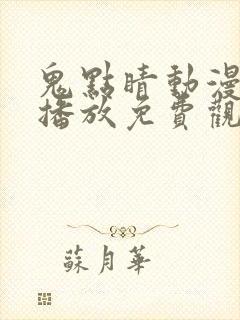 鬼點睛動漫
播放免費觀
蘇月華